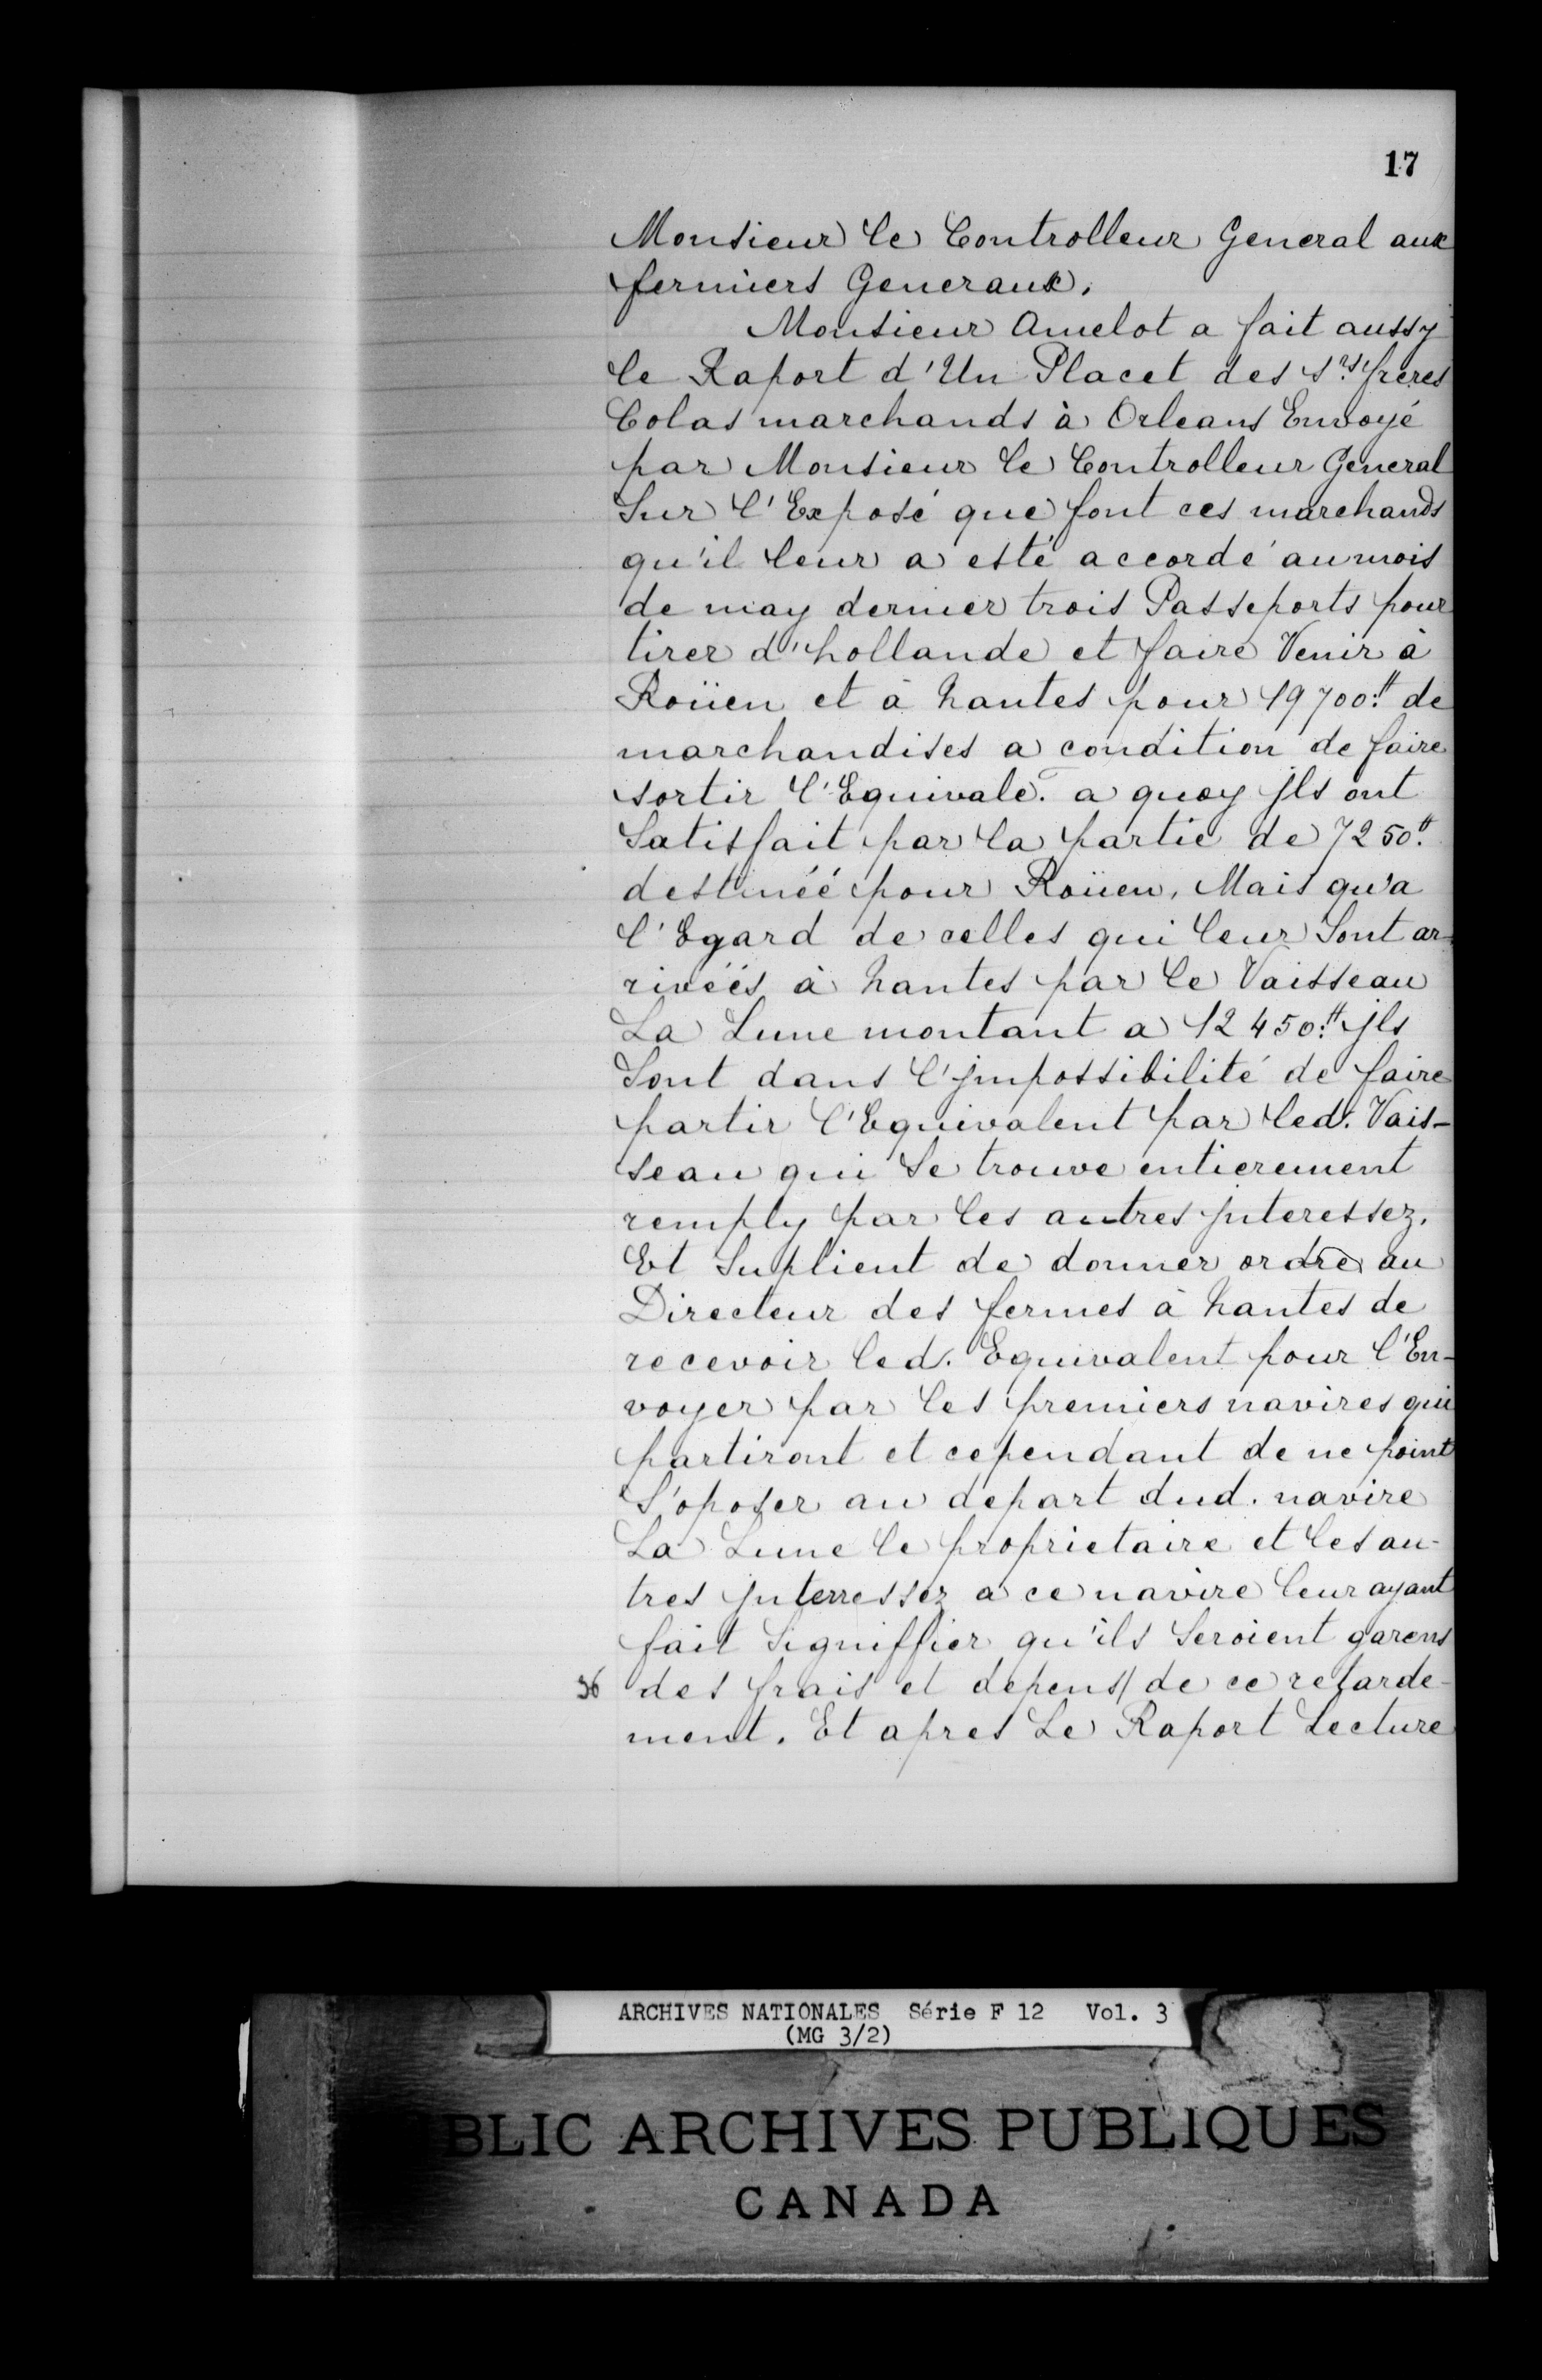 17
Monsieur le Controlleur General aux
fermiers Generaux.
Monsieur Amelot a fait aussy
le Raport d'Un Placet des Srs freres
Colas marchands à Orleans Envoyé
par Monsieur le Controlleur General
Sur l'Exposé que font ces marchands
qu'il leur a esté accordé au mois
de may dernier trois Passeports pour
tirer d'hollande et faire Venir à
Roüen et à Nantes pour 19700.# de
marchandises a condition de faire
sortir l'Equivalt. a quoy jls ont
Satisfait par la partie de 7250.#
destinéé pour Roüen, Mais qu'a
l'Egard de celles qui leur Sont ar-
rivéés à Nantes par le Vaisseau
La Lune montant a 12450.# jls
Sont dans l'jmpossibilité de faire
partir l'Equivalent par led. Vais-
seau qui Se trouve entierement
remply par les autres jnteressez.
Et Suplient de donner ordre au
Directeur des fermes à Nantes de
recevoir led. Equivalent pour l'En-
voyer par les premiers navires qui
partiront et cependant de ne point
S'oposer au depart dud. navire
La Lune le proprietaire et les au-
tres jnterressez a ce navire leur ayant
fait Signiffier qu'ils Seroient garens
36 des frais et depens/ de ce retarde-
ment. Et apres Le Raport Lecture
ARCHIVES NATIONALES Série F 12 Vol. 3
(MG 3/2)
BLIC ARCHIVES PUBLIQUES
CANADA